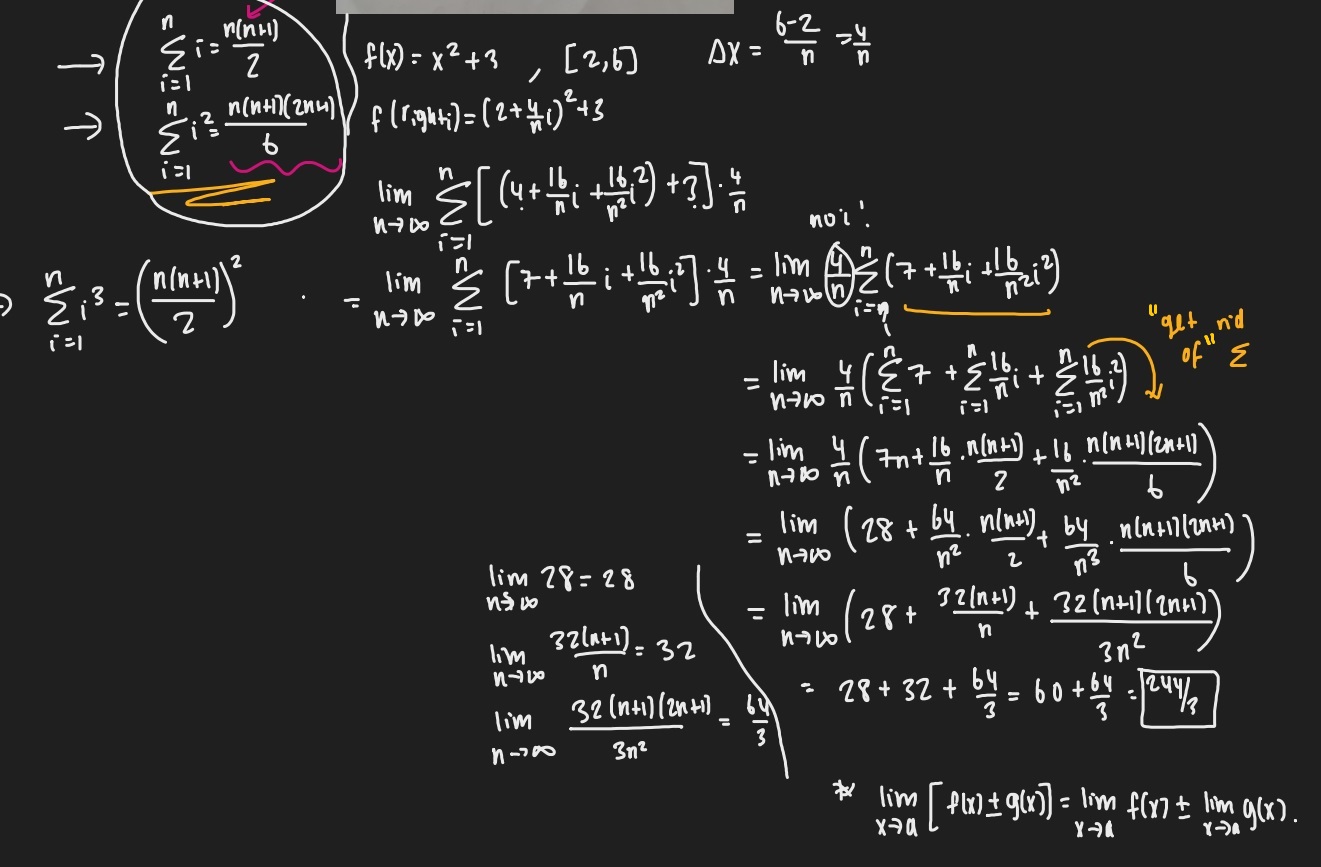 → \sum_{i=1}^{n} i = \frac{n(n+1)}{2}
→ \sum_{i=1}^{n} i^2 = \frac{n(n+1)(2n+1)}{6}
\sum_{i=1}^{n} i^3 = \left(\frac{n(n+1)}{2}\right)^2
f(x) = x^2+3 , [2,6]   Δx = \frac{6-2}{n} = \frac{4}{n}
f(right_i) = (2+\frac{4}{n}i)^2+3
\lim_{n→∞} \sum_{i=1}^{n} [(4+\frac{16}{n}i+\frac{16}{n^2}i^2)+3]·\frac{4}{n}
no i!
= \lim_{n→∞} \sum_{i=1}^{n} [7+\frac{16}{n}i+\frac{16}{n^2}i^2]·\frac{4}{n} = \lim_{n→∞} \frac{4}{n} \sum_{i=1}^{n} (7+\frac{16}{n}i+\frac{16}{n^2}i^2)
"get rid
of" Σ
= \lim_{n→∞} \frac{4}{n} (\sum_{i=1}^{n} 7 + \sum_{i=1}^{n} \frac{16}{n}i + \sum_{i=1}^{n} \frac{16}{n^2}i^2)
= \lim_{n→∞} \frac{4}{n} (7n+\frac{16}{n}·\frac{n(n+1)}{2}+\frac{16}{n^2}·\frac{n(n+1)(2n+1)}{6})
= \lim_{n→∞} (28+\frac{64}{n^2}·\frac{n(n+1)}{2}+\frac{64}{n^3}·\frac{n(n+1)(2n+1)}{6})
= \lim_{n→∞} (28+\frac{32(n+1)}{n}+\frac{32(n+1)(2n+1)}{3n^2})
= 28+32+\frac{64}{3} = 60+\frac{64}{3} = 244/3
\lim_{n→∞} 28 = 28
\lim_{n→∞} \frac{32(n+1)}{n} = 32
\lim_{n→∞} \frac{32(n+1)(2n+1)}{3n^2} = \frac{64}{3}
* \lim_{x→a} [f(x)±g(x)] = \lim_{x→a} f(x) ± \lim_{x→a} g(x).